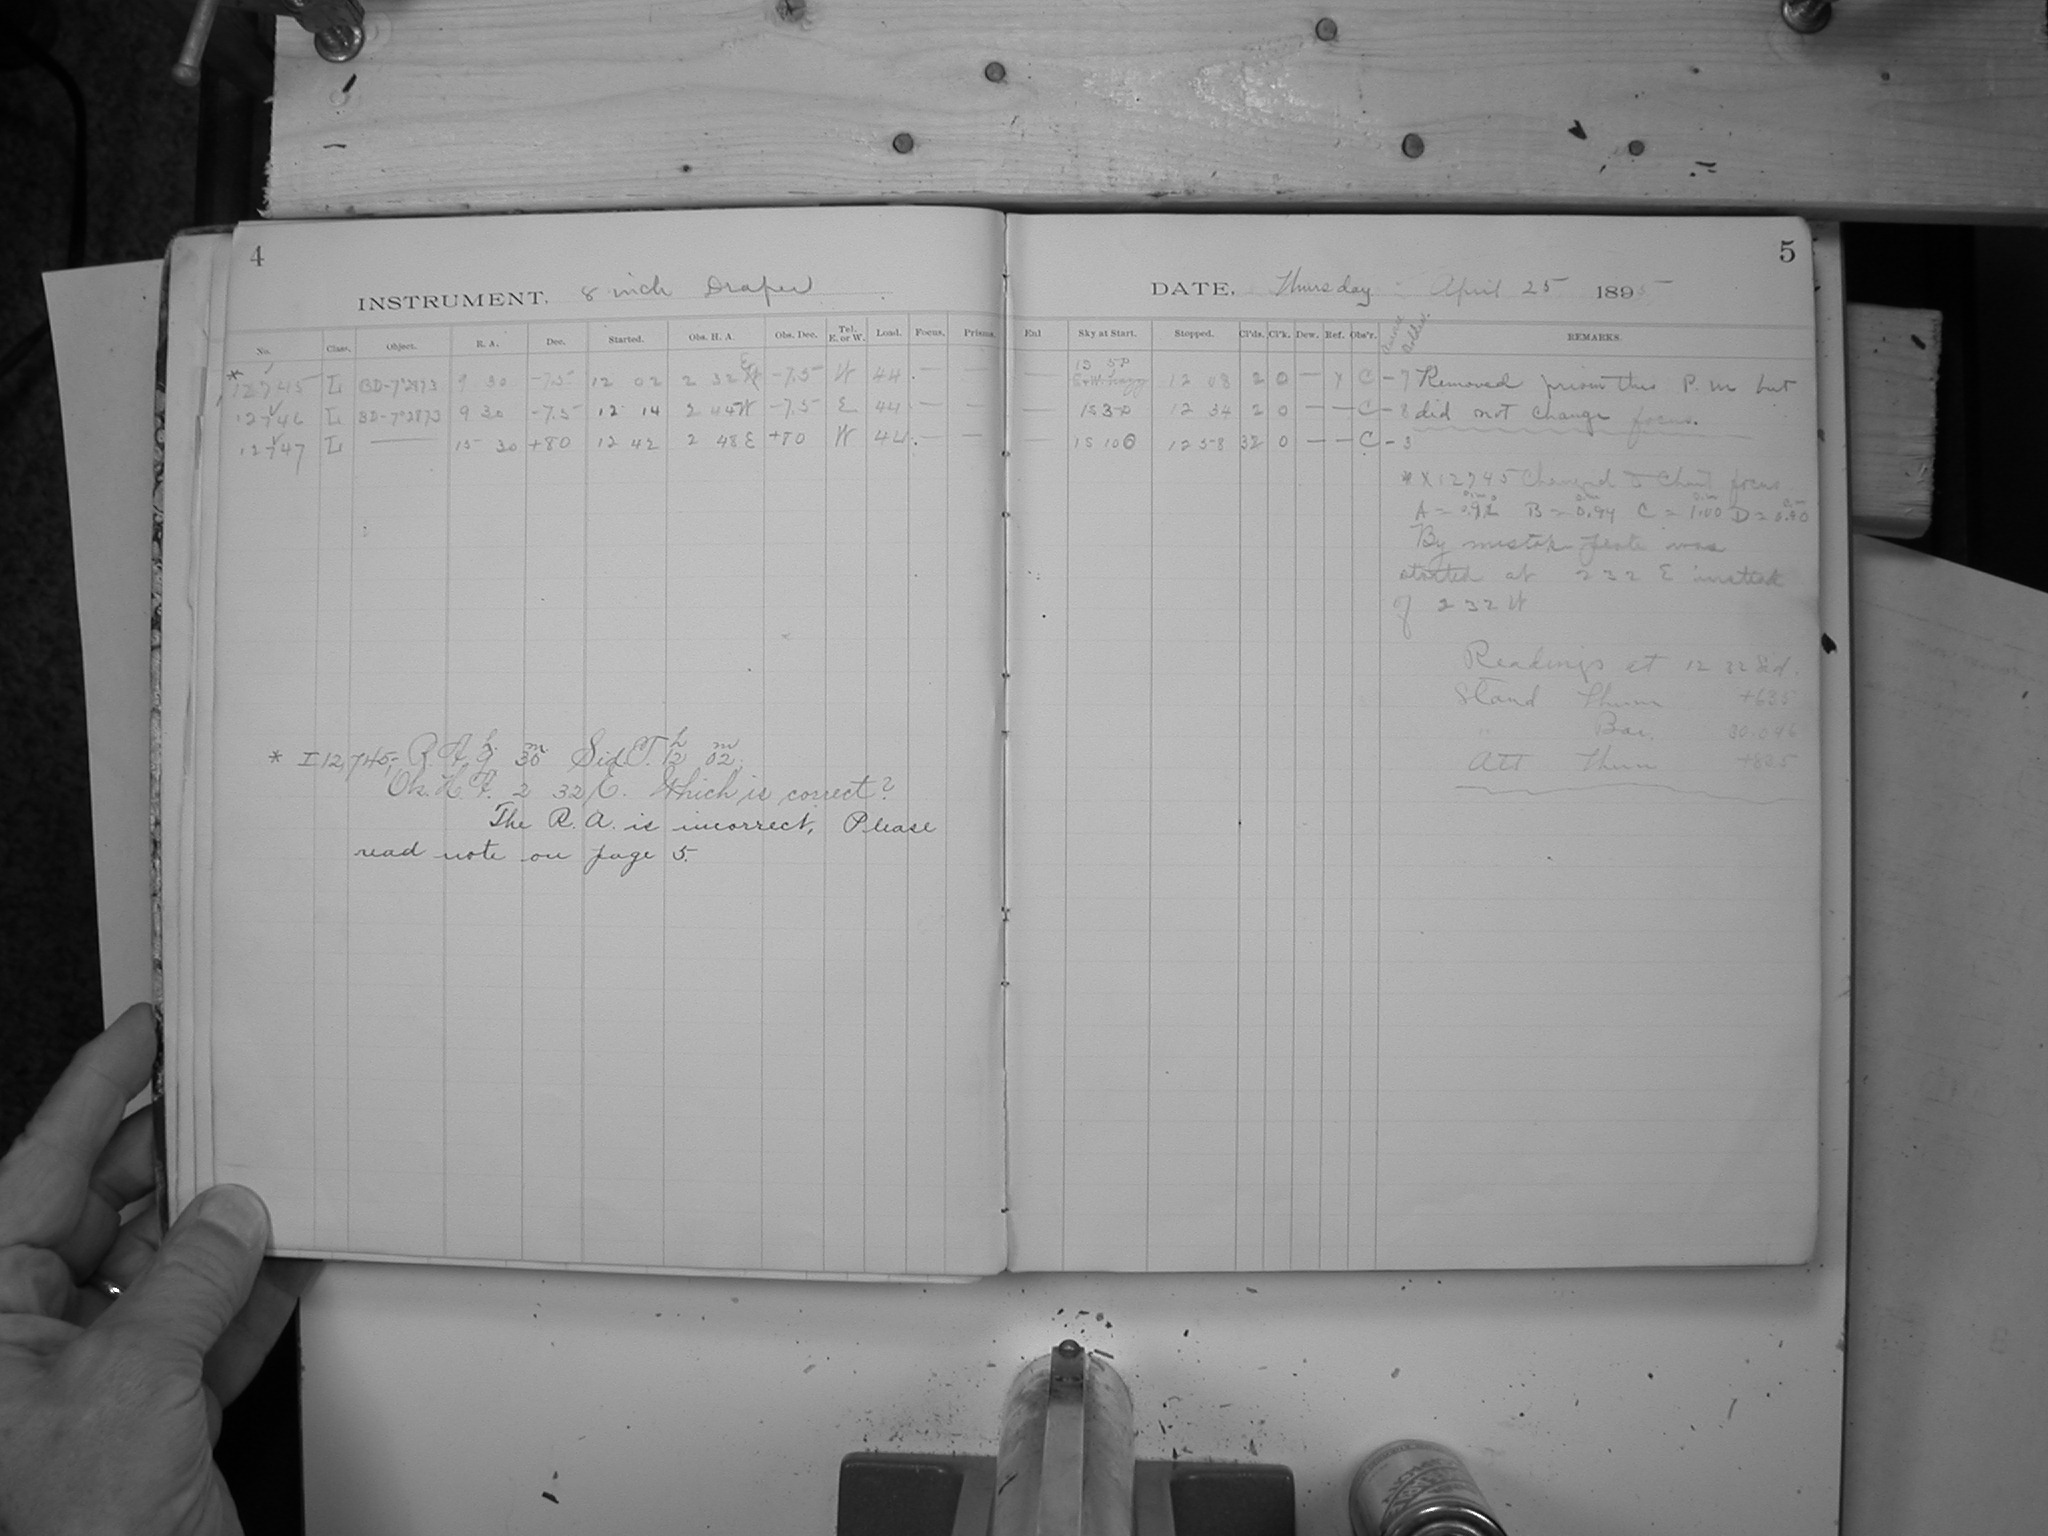 4
INSTRUMENT, 8 inch Draper
No. Class. Object. R. A. Dec. Started. Obs. H. A. Obs. Dec. Tel. E. or W. Load. Focus. Prisms.
* 12745 L BD-7°2873 9 30 -7.5 12 02 2 32 E -7.5 W 44 — —
12746 L BD-7°2873 9 30 -7.5 12 14 2 44 W -7.5 E 44 — —
12747 L — 15 30 +80 12 42 2 48 E +80 W 44 — —
* I 12,745; R.A. 9h 30m Sid. T. 12h 02m;
Ob. H.A. 2 32 E. Which is correct?
The R. A. is incorrect, Please
read note on page 5.
5
DATE, Thursday April 25 1895
Enl Sky at Start. Stopped. Cl'ds. Cl'k. Dew. Ref. Obs'r. REMARKS.
— 12 08 2 0 — C -7 Removed prism this P.M but
— 12 34 2 0 — — C -8 did not change focus.
— 12 58 0 — — C -3
* X 12745 Changed to Chart focus
A = 0.92 B = 0.94 C = 1.00 D = 0.90
By mistake plate was
started at 2 32 E instead
of 2 32 W
Readings at 12 32 Sid.
Stand Therm +635
" Bar. 30.046
Att Therm